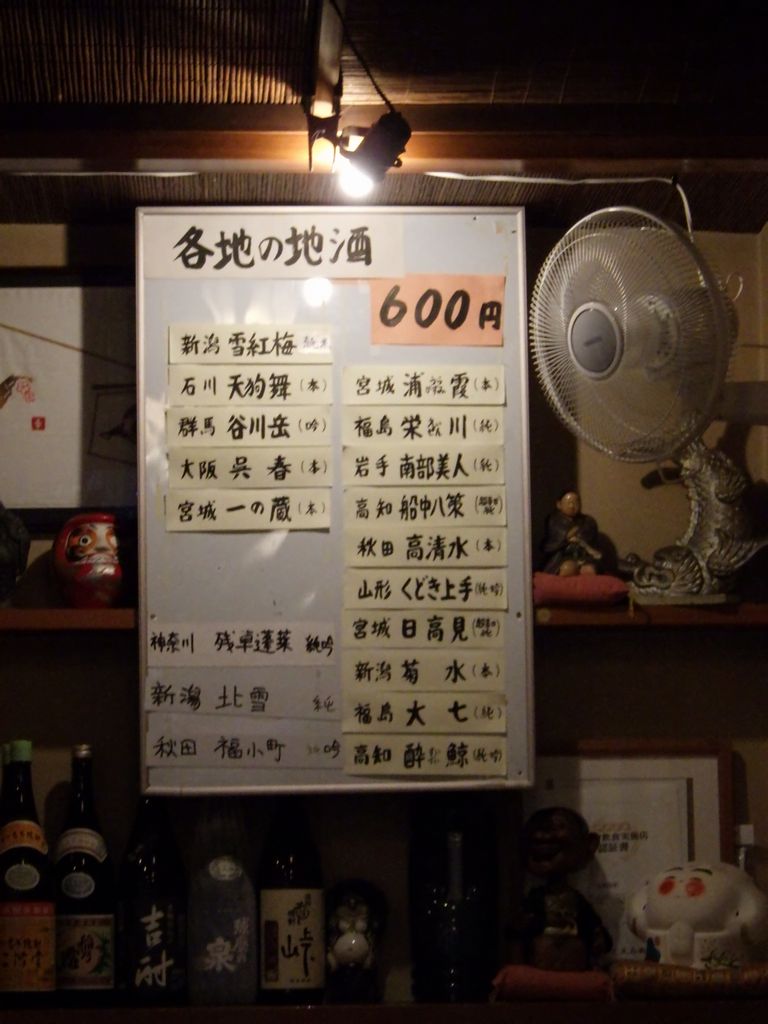 各地の地酒
600円
新潟 雪紅梅
石川 天狗舞 (本)
群馬 谷川岳 (吟)
大阪 呉春 (本)
宮城 一の蔵 (本)
神奈川 残草蓬莱 純吟
新潟 北雪 純
秋田 福小町 吟
宮城 浦霞 (本)
福島 栄川 (純)
岩手 南部美人 (純)
高知 船中八策
秋田 高清水 (本)
山形 くどき上手 (純吟)
宮城 日高見
新潟 菊水 (本)
福島 大七 (純)
高知 酔鯨 (純吟)
吉
泉
峠